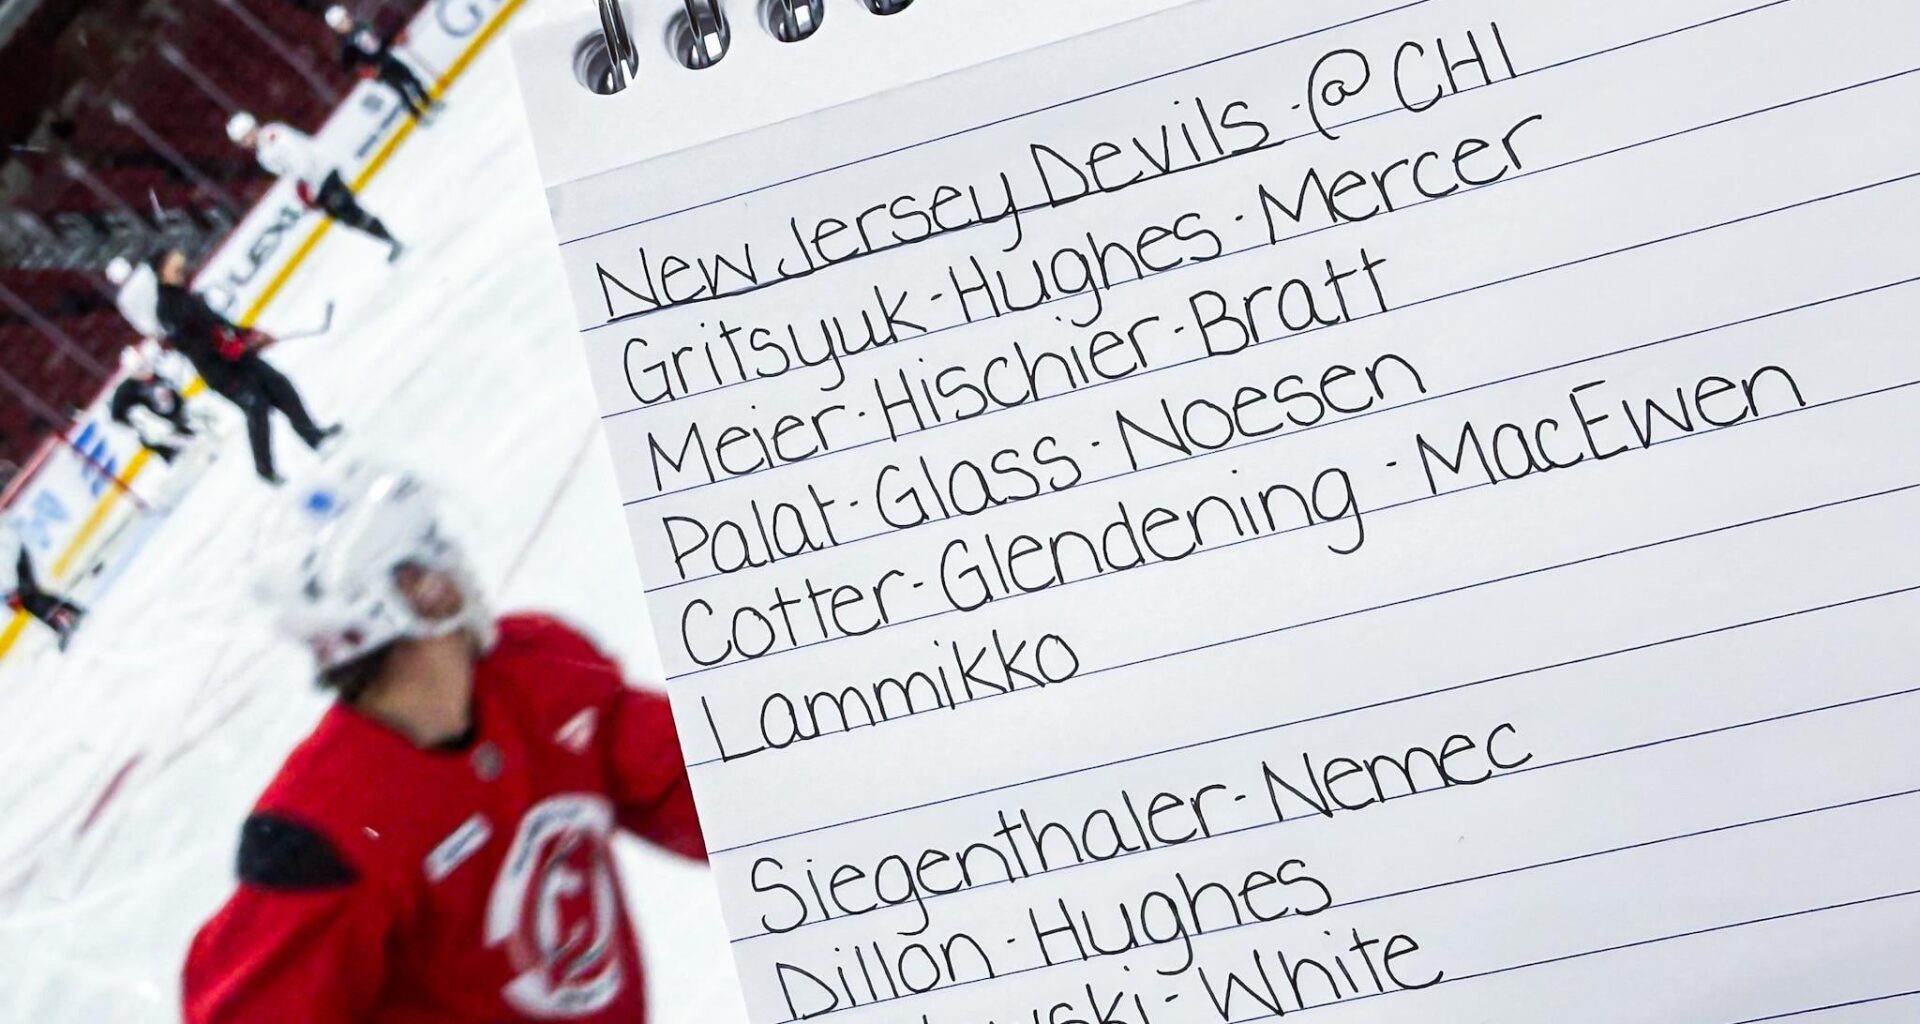 New Jersey Devils - @ CHI
Gritsyuk - Hughes - Mercer
Meier - Hischier - Bratt
Palat - Glass - Noesen
Cotter - Glendening - MacEwen
Lammikko
Siegenthaler - Nemec
Dillon - Hughes
White